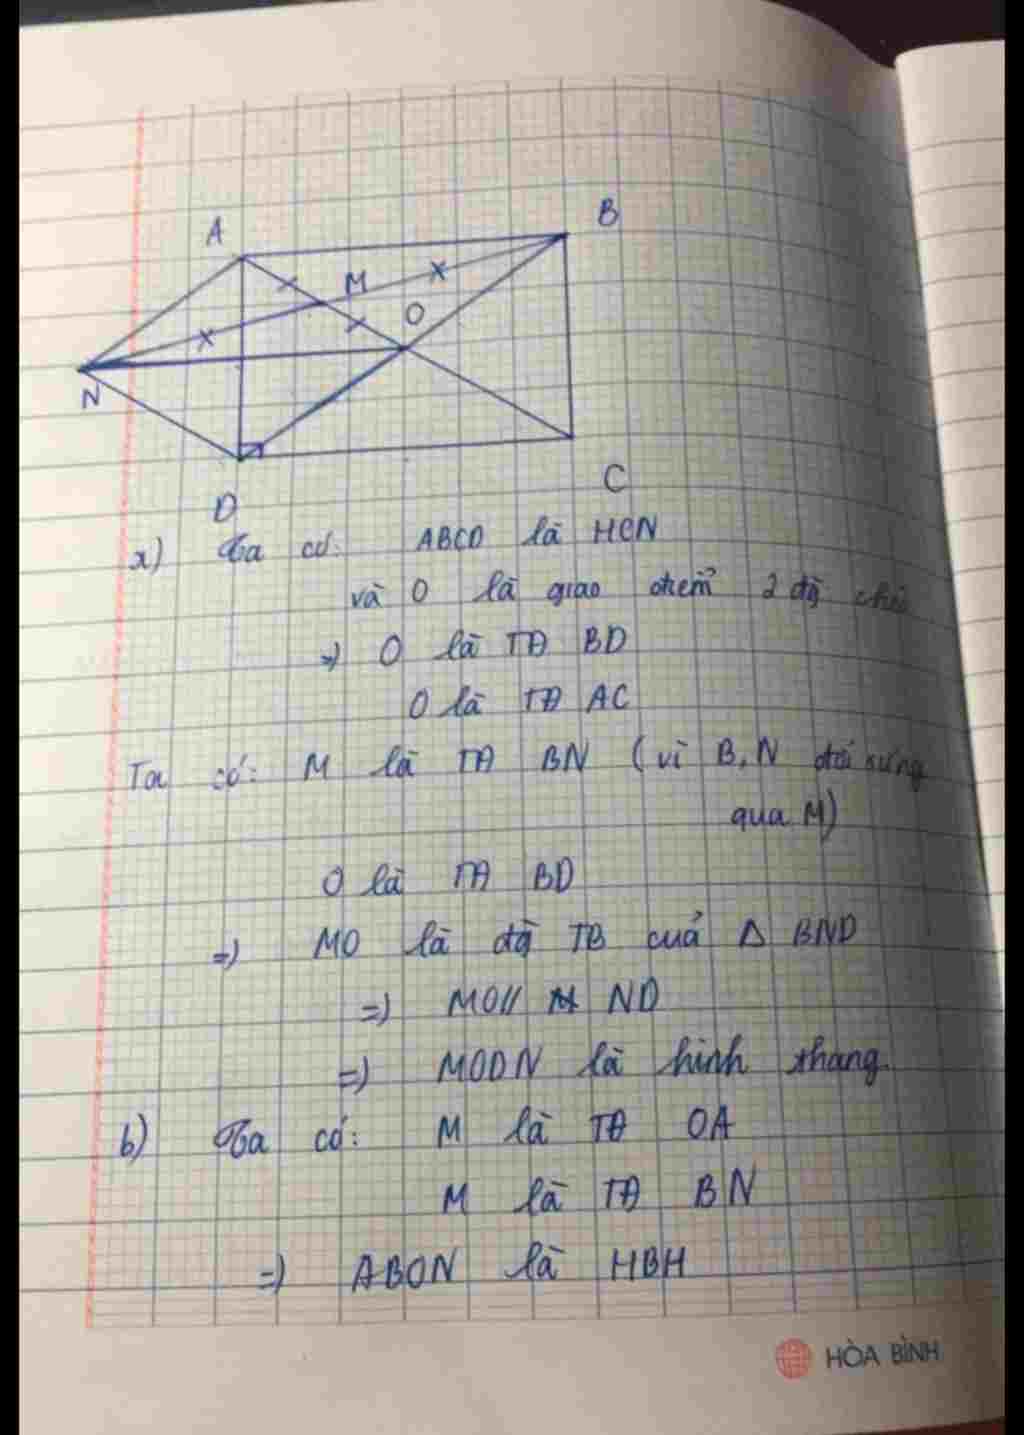 A
B
M
O
N
D
C
a) Ta có: ABCD là HCN
và O là giao điểm 2 đg chéo
=) O là TĐ BD
O là TĐ AC
Ta có: M là TĐ BN (vì B, N đối xứng
qua M)
O là TĐ BD
=) MO là đg TB cuả Δ BND
=) MO // ND
=) MODN là hình thang.
b) Ta có: M là TĐ OA
M là TĐ BN
=) ABON là HBH
HÒA BÌNH